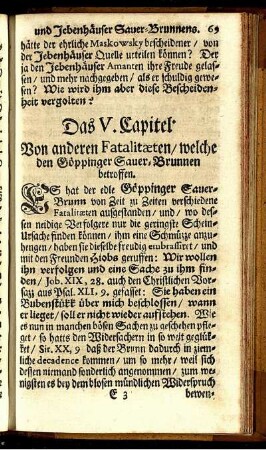 und Jebenhäuser Sauer-Brunnens. 69
hätte der ehrliche Maskowsky bescheidener / von
der Jebenhäuser Quelle urtheilen können? Der
ja den Jebenhäuser Amanten ihre Freude gelas-
sen / und mehr nachgegeben / als er schuldig gewe-
sen? Wie wird ihm aber diese Bescheiden-
heit vergolten?
Das V. Capitel
Von anderen Fatalitæten / welche
den Göppinger Sauer-Brunnen
betroffen.
ES hat der edle Göppinger Sauer-
Brunn von Zeit zu Zeiten verschiedene
Fatalitæten außgestanden / und / wo des-
sen neidige Verfolgere nur die geringste Schein-
Ursache finden können / ihm eine Schmitze anzu-
hengen / haben sie dieselbe freudig embrassiret / und
mit den Freunden Hiobs geruffen: Wir wollen
ihn verfolgen und eine Sache zu ihm fin-
den / Job. XIX, 28. auch den Christlichen Vor-
satz aus Psal. XLI. 9. gefasset: Sie haben ein
Bubenstükk über mich beschlossen / wann
er lieget / soll er nicht wieder aufstehen. Wie
es nun in manchen bösen Sachen zu geschehen pfle-
get / so hatts den Widersachern in so weit geglük-
ket / Sir. XX, 9 daß der Brunn dadurch in ziem-
liche decadence kommen / um so mehr / weil sich
dessen niemand sonderlich angenommen / zum we-
nigsten es bey dem blosen mündlichen Widerspruch
E 3 bewen-